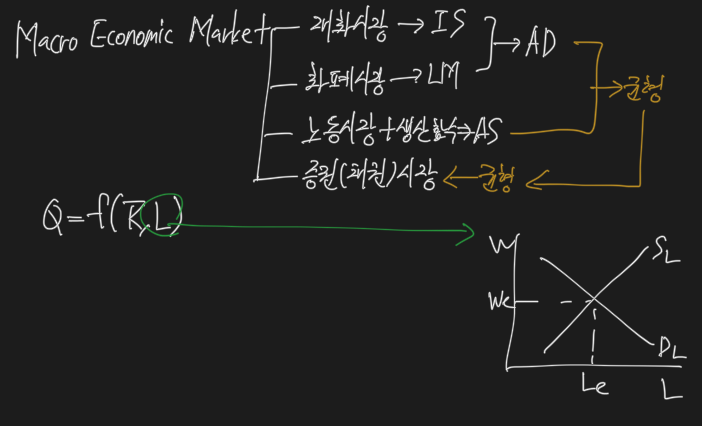 Macro Economic Market
재화시장 → IS
화폐시장 → LM
→ AD
노동시장+생산함수⇒AS
→ 균형
증권(채권)시장 ← 균형 ←
Q=f(K̅,L)
W
SL
We
DL
Le
L